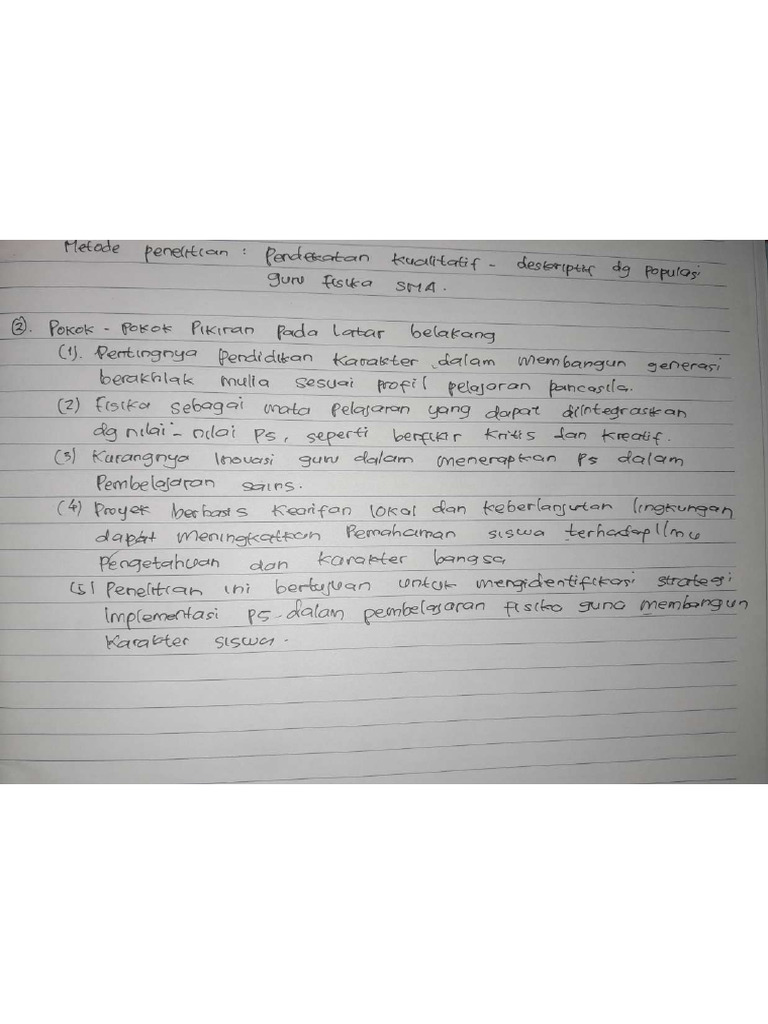 Metode penelitian : Pendekatan kualitatif - deskriptif dg populasi
guru fisika SMA.
②. Pokok - pokok Pikiran pada Latar belakang
(1). Pentingnya pendidikan karakter dalam membangun generasi
berakhlak mulia sesuai profil pelajaran pancasila.
(2) Fisika sebagai mata pelajaran yang dapat diintegrasikan
dg nilai - nilai P5, seperti berfikir kritis dan kreatif.
(3) Kurangnya Inovasi guru dalam menerapkan P5 dalam
Pembelajaran sains.
(4) Proyek berbasis kearifan lokal dan keberlanjutan lingkungan
dapat meningkatkan Pemahaman siswa terhadap Ilmu
Pengetahuan dan karakter bangsa
(5) Penelitian ini bertujuan untuk mengidentifikasi strategi
Implementasi P5 dalam pembelajaran fisika guna membangun
Karakter siswa.